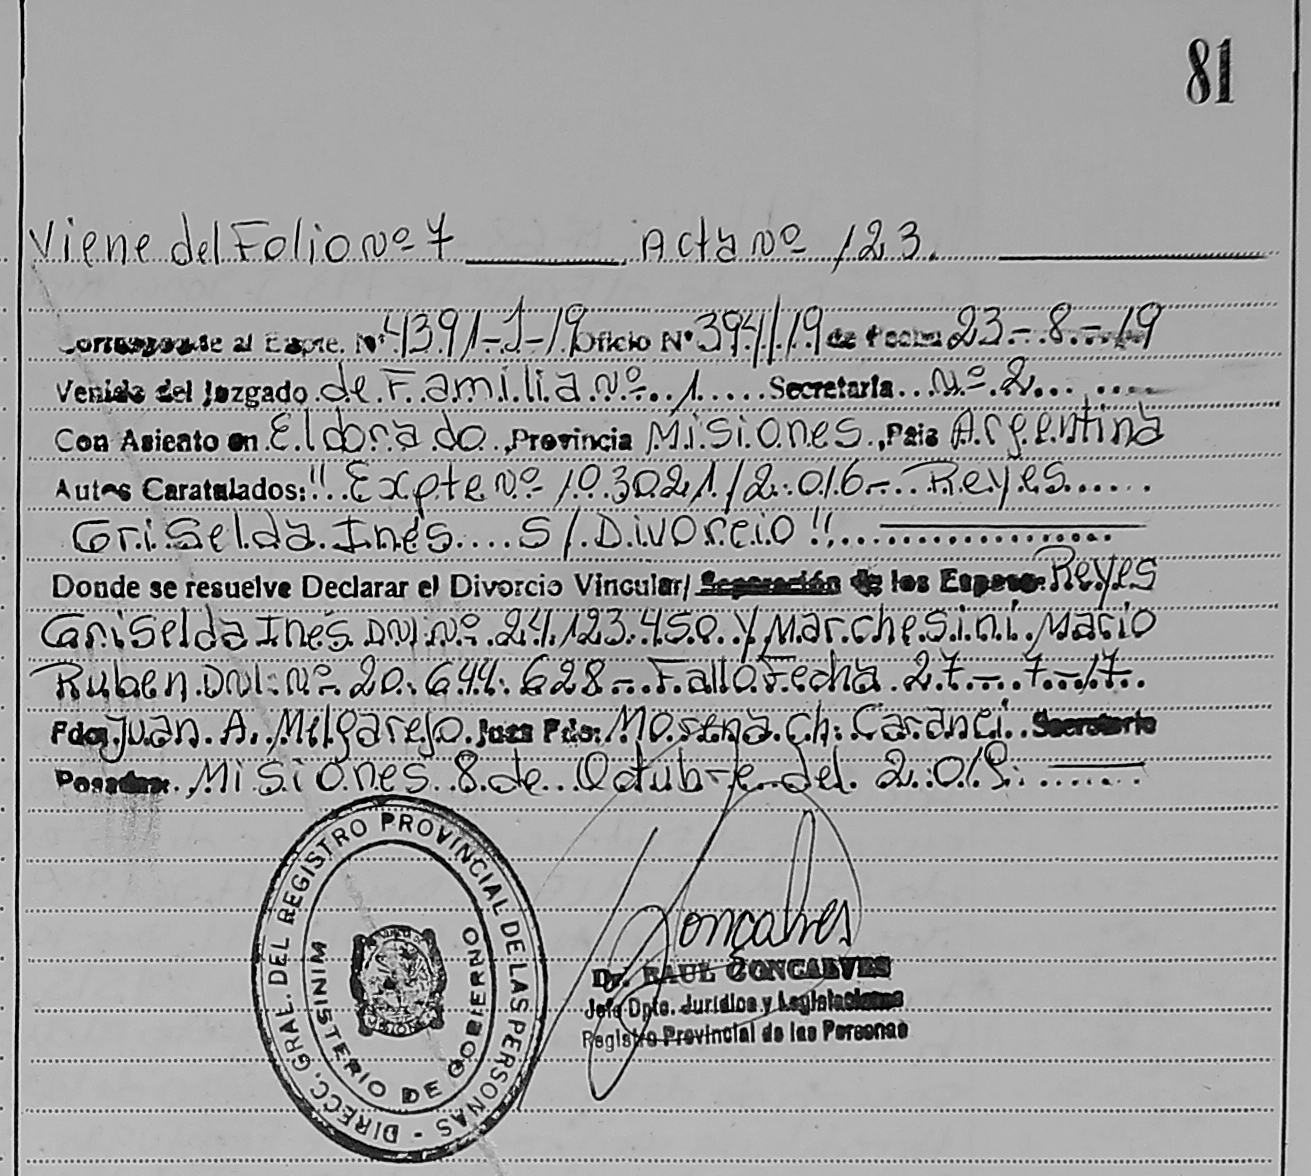 81
Viene del Folio Nº 7 Acta Nº 123.
Corresponde al Expte. Nº 4391-1-19 Oficio Nº 394/19 de Fecha 23-8-19
Venido del Juzgado de Familia Nº 1 Secretaria Nº 2
Con Asiento en Eldorado, Provincia Misiones, Pais Argentina
Autos Caratulados: "Expte Nº 103021/2.016- Reyes
Griselda Inés S/ Divorcio"
Donde se resuelve Declarar el Divorcio Vincular/ Separación de los Esposos: Reyes
Griselda Inés DNI Nº 24.123.450 y Marchesini Mario
Ruben DNI: Nº 20.644.628- Fallo Fecha 27-7-17.
Fdo: Juan A. Milgarejo Juez Fdo: Morena Ch. Secretario
Posadas. Misiones 8 de Octubre del 2.019.
DIRECC. GRAL. DEL REGISTRO PROVINCIAL DE LAS PERSONAS -
MINISTERIO DE GOBIERNO
MISIONES
Gonçalves
Dr. RAUL GONCALVES
Jefe Dpto. Jurídico y Legislaciones
Registro Provincial de las Personas